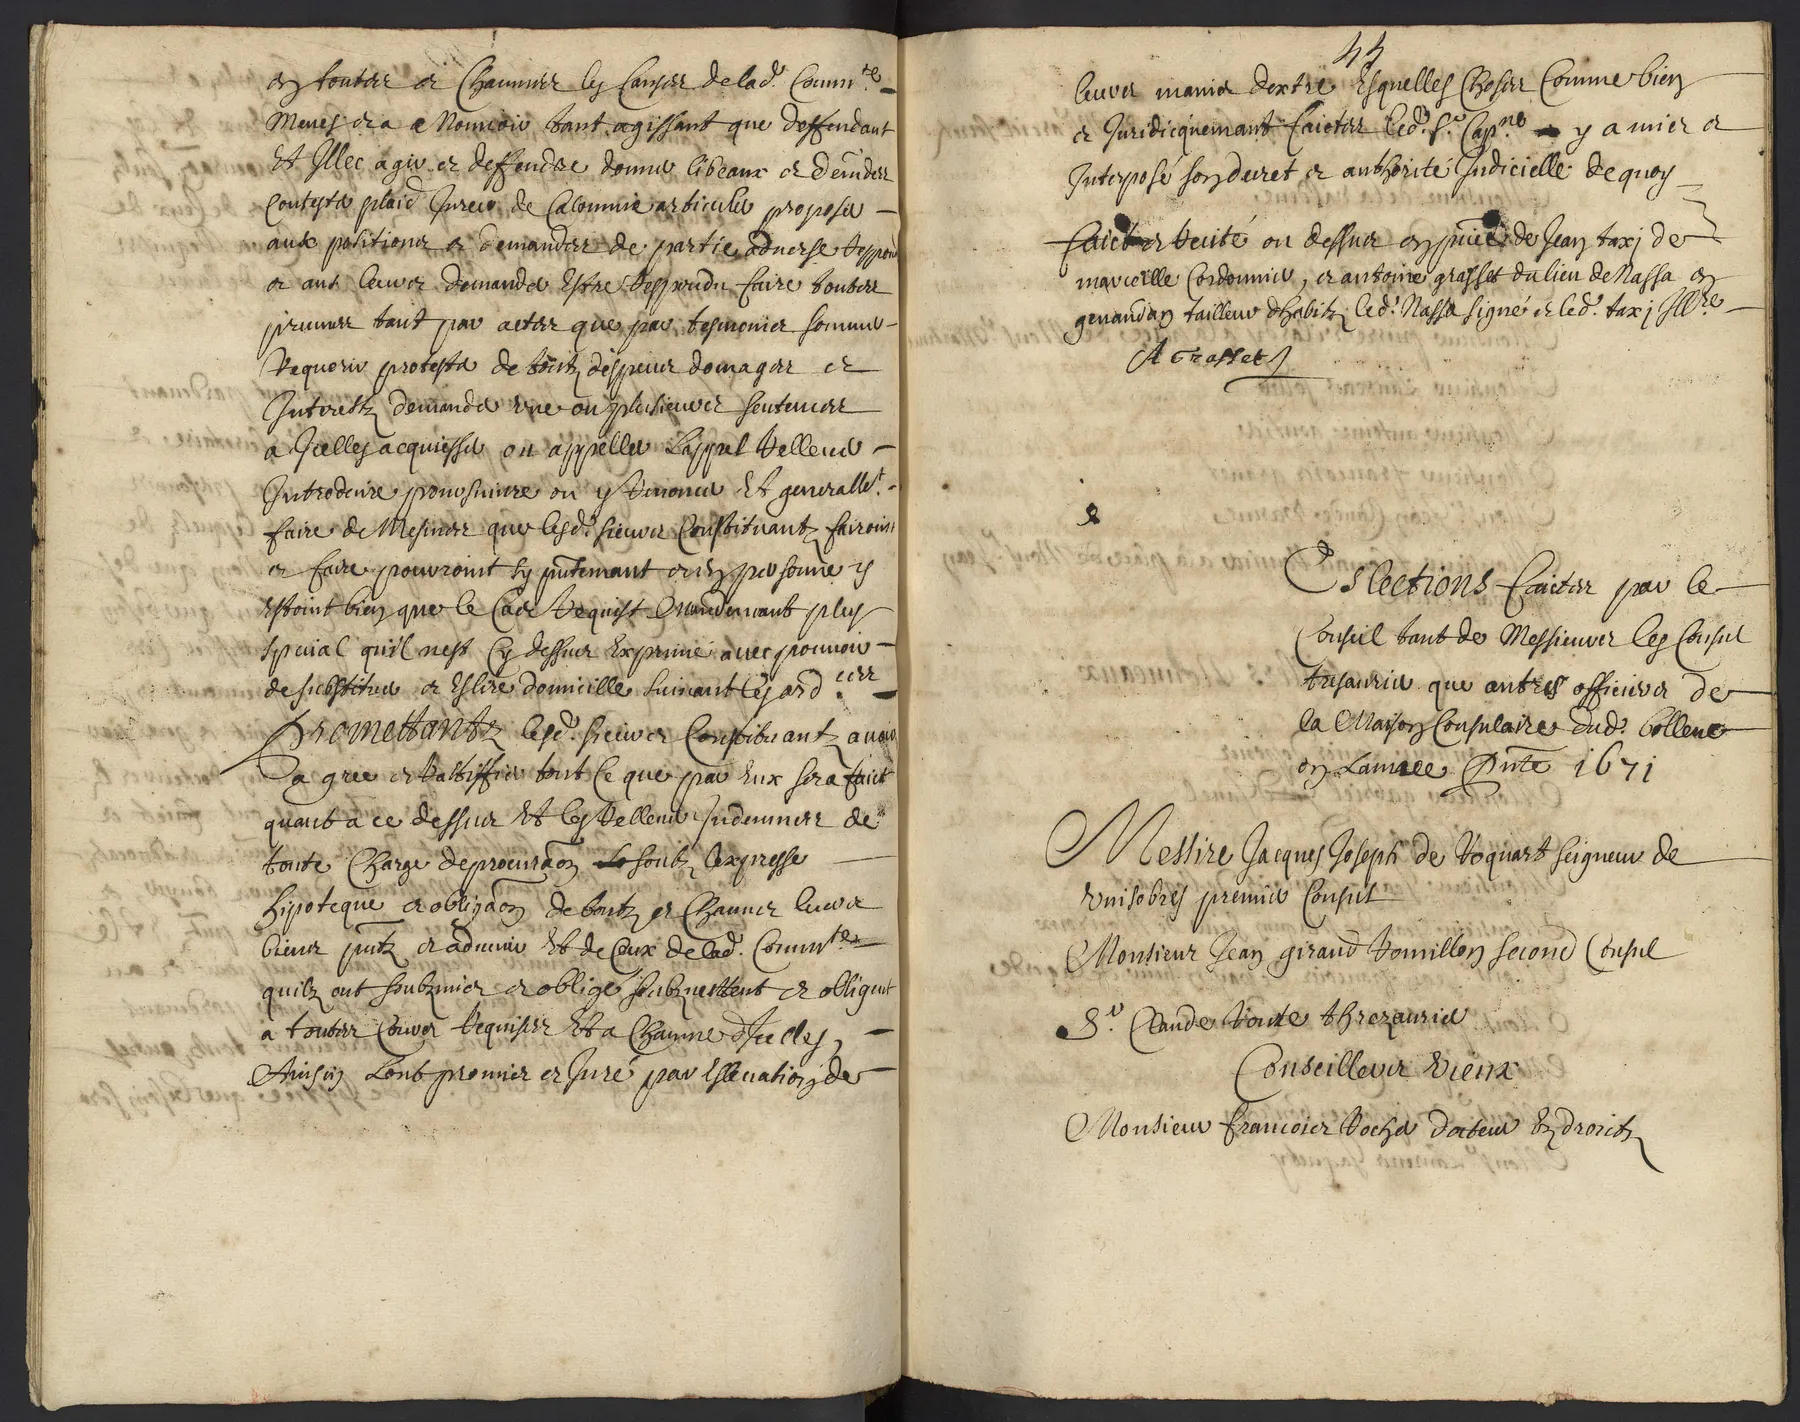 en toutes et chaunes les causes de lad. Commté
Meues et a Mouvoir tant agissant que deffendant
Et Illec agir et deffendre donner libeaux et demdes
Contester plaid Jurer de Calomnie articuler proposer
aux positions et demandes de partie adverse respondre
et aux leurs demander Estre respondu faire toutes
preuves tant par actes que par tesmoins sommer
Requerir protester de toutz despens domages et
Interestz demander une ou plusieurs sentences
a Icelles acquiesser ou appeller L'appel Relleuer
Introduire poursuiure ou y Renoncer Et generallet.
faire de Mesmes que lesd. sieurs Constituantz fairoint
et faire pourroint sy pntement et en personne y
Estoint bien que le Cas Requist Mandemant plus
special quil nest Cy dessus Exprimé avec pouvoir
de substituer et Eslire domicille suivant les ordces
Promettantz lesd. sieurs Constituantz avoir
a gree et Rattiffier tout ce que par Eux sera faict
quant a ce dessus Et les Relleuer Indemnes de
toute Charge de procuraõn soubz lexpresse
hipoteque et obligaõn de toutz et Chaunes leurs
biens pntz et aduenir Et de Ceux de lad. Commté
quilz ont soubzmis et obligé soubzmettent et obligent
a toutes Cours Requises Et a Chaune d'Icelles,
Ainsin Lont promis et Juré par Esleuation de
44
leurs mains dextre Esquelles Choses Comme bien
et Juridicquemant faictes led. Sr. Capne y a mis et
Interposé son decret et authorité Judicielle de quoy
faict et Recité ou dessus en pnce de Jean taxj de
marceille Cordonnier, et antoine grasset du lieu de Nassa en
genaudan tailleur dhabitz led. Nassa signé et led. taxj Illre
A Grasset
Eslections faictes par le
Conseil tant de Messieurs les Consul
tresaurier que autres officiers de
la Maison Consulaire dud. bollene
en Lannee Pnte 1671
Messire Jacques Joseph de Roquart seigneur de
Vinsobres premier Consul
Monsieur Jean giraud Romillon second Consul
Sr. Claude Route threzaurier
Conseillers vieux
Monsieur francois Rocher docteur En droictz